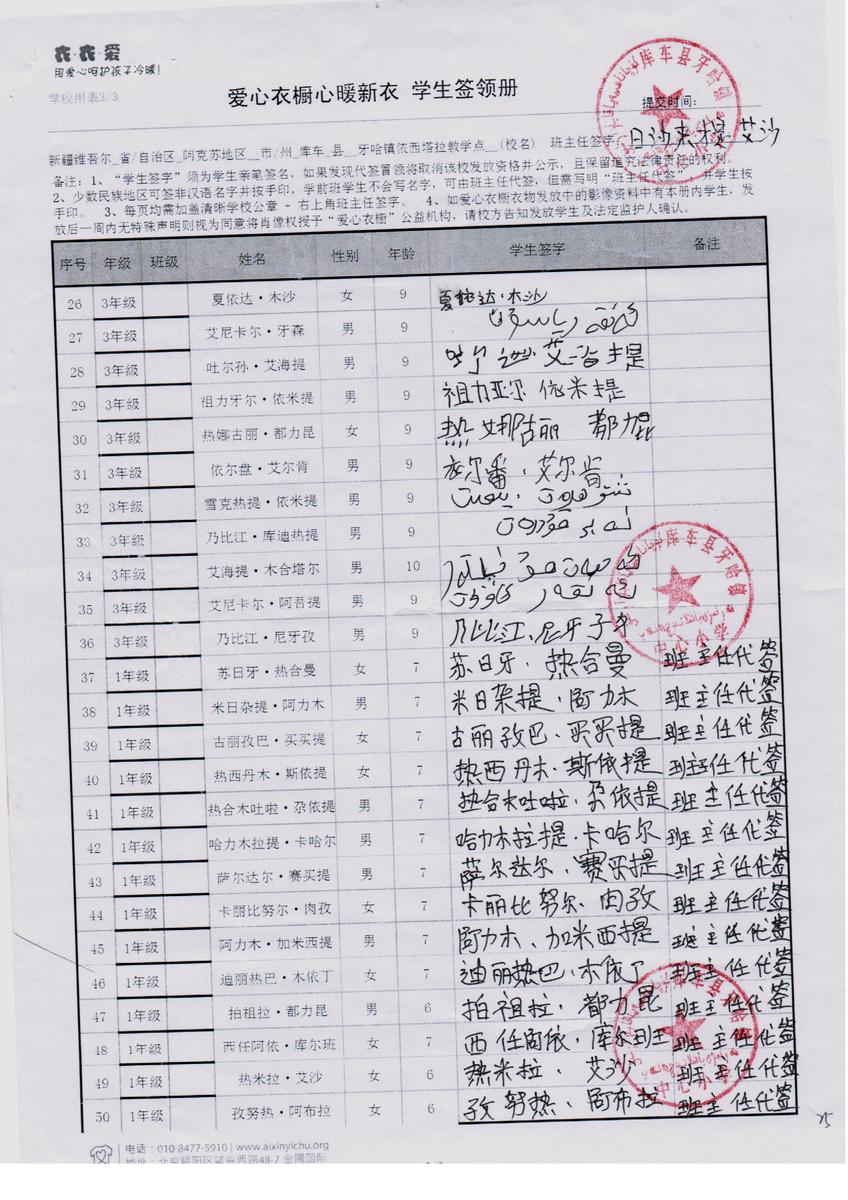 衣·衣·爱
用爱心呵护孩子冷暖!
学校用表3/3
爱心衣橱心暖新衣 学生签领册
提交时间:
新疆维吾尔_省/自治区_阿克苏地区__市/州_库车_县__牙哈镇依西塔拉教学点__(校名) 班主任签字: 日沙来提 艾沙
备注：1、“学生签字”须为学生亲笔签名，如果发现代签冒领将取消该校发放资格并公示，且保留追究法律责任的权利。
2、少数民族地区可签非汉语名字并按手印，学前班学生不会写名字，可由班主任代签，但需写明“班主任代签”，并学生按
手印。 3、每页均需加盖清晰学校公章 - 右上角班主任签字。 4、如爱心衣橱衣物发放中的影像资料中有本册内学生，发
放后一周内无特殊声明则视为同意将肖像权授予“爱心衣橱”公益机构，请校方告知发放生及法定监护人确认。
序号 年级 班级 姓名 性别 年龄 学生签字 备注
26 3年级 夏依达·木沙 女 9 夏依达·木沙
27 3年级 艾尼卡尔·牙森 男 9
28 3年级 吐尔孙·艾海提 男 9
29 3年级 祖力牙尔·依米提 男 9 祖力亚尔 依米提
30 3年级 热娜古丽·都力昆 女 9 热娜古丽 都力昆
31 3年级 依尔盘·艾尔肯 男 9 依尔番·艾尔肯
32 3年级 雪克热提·依米提 男 9
33 3年级 乃比江·库迪热提 男 9
34 3年级 艾海提·木合塔尔 男 10
35 3年级 艾尼卡尔·阿吾提 男 9
36 3年级 乃比江·尼牙孜 男 9 乃比江·尼牙子
37 1年级 苏日牙·热合曼 女 7 苏日牙·热合曼 班主任代签
38 1年级 米日杂提·阿力木 男 7 米日杂提·阿力木 班主任代签
39 1年级 古丽孜巴·买买提 女 7 古丽孜巴·买买提 班主任代签
40 1年级 热西丹木·斯依提 女 7 热西丹木·斯依提 班主任代签
41 1年级 热合木吐啦·尕依提 男 7 热合木吐啦·尕依提 班主任代签
42 1年级 哈力木拉提·卡哈尔 男 7 哈力木拉提·卡哈尔 班主任代签
43 1年级 萨尔达尔·赛买提 男 7 萨尔达尔·赛买提 班主任代签
44 1年级 卡丽比努尔·肉孜 女 7 卡丽比努尔·肉孜 班主任代签
45 1年级 阿力木·加米西提 男 7 阿力木、加米西提 班主任代签
46 1年级 迪丽热巴·木依丁 女 7 迪丽热巴·木依丁 班主任代签
47 1年级 拍祖拉·都力昆 男 6 拍祖拉·都力昆 班主任代签
48 1年级 西任阿依·库尔班 女 7 西任阿依·库尔班 班主任代签
49 1年级 热米拉·艾沙 女 6 热米拉、艾沙 班主任代签
50 1年级 孜努热·阿布拉 女 6 孜努热、阿布拉 班主任代签
库车县牙哈镇
中心小学
电话：010-8477-5910 | www.aixinyichu.org
地址：北京朝阳区望京西路48-7 金隅国际